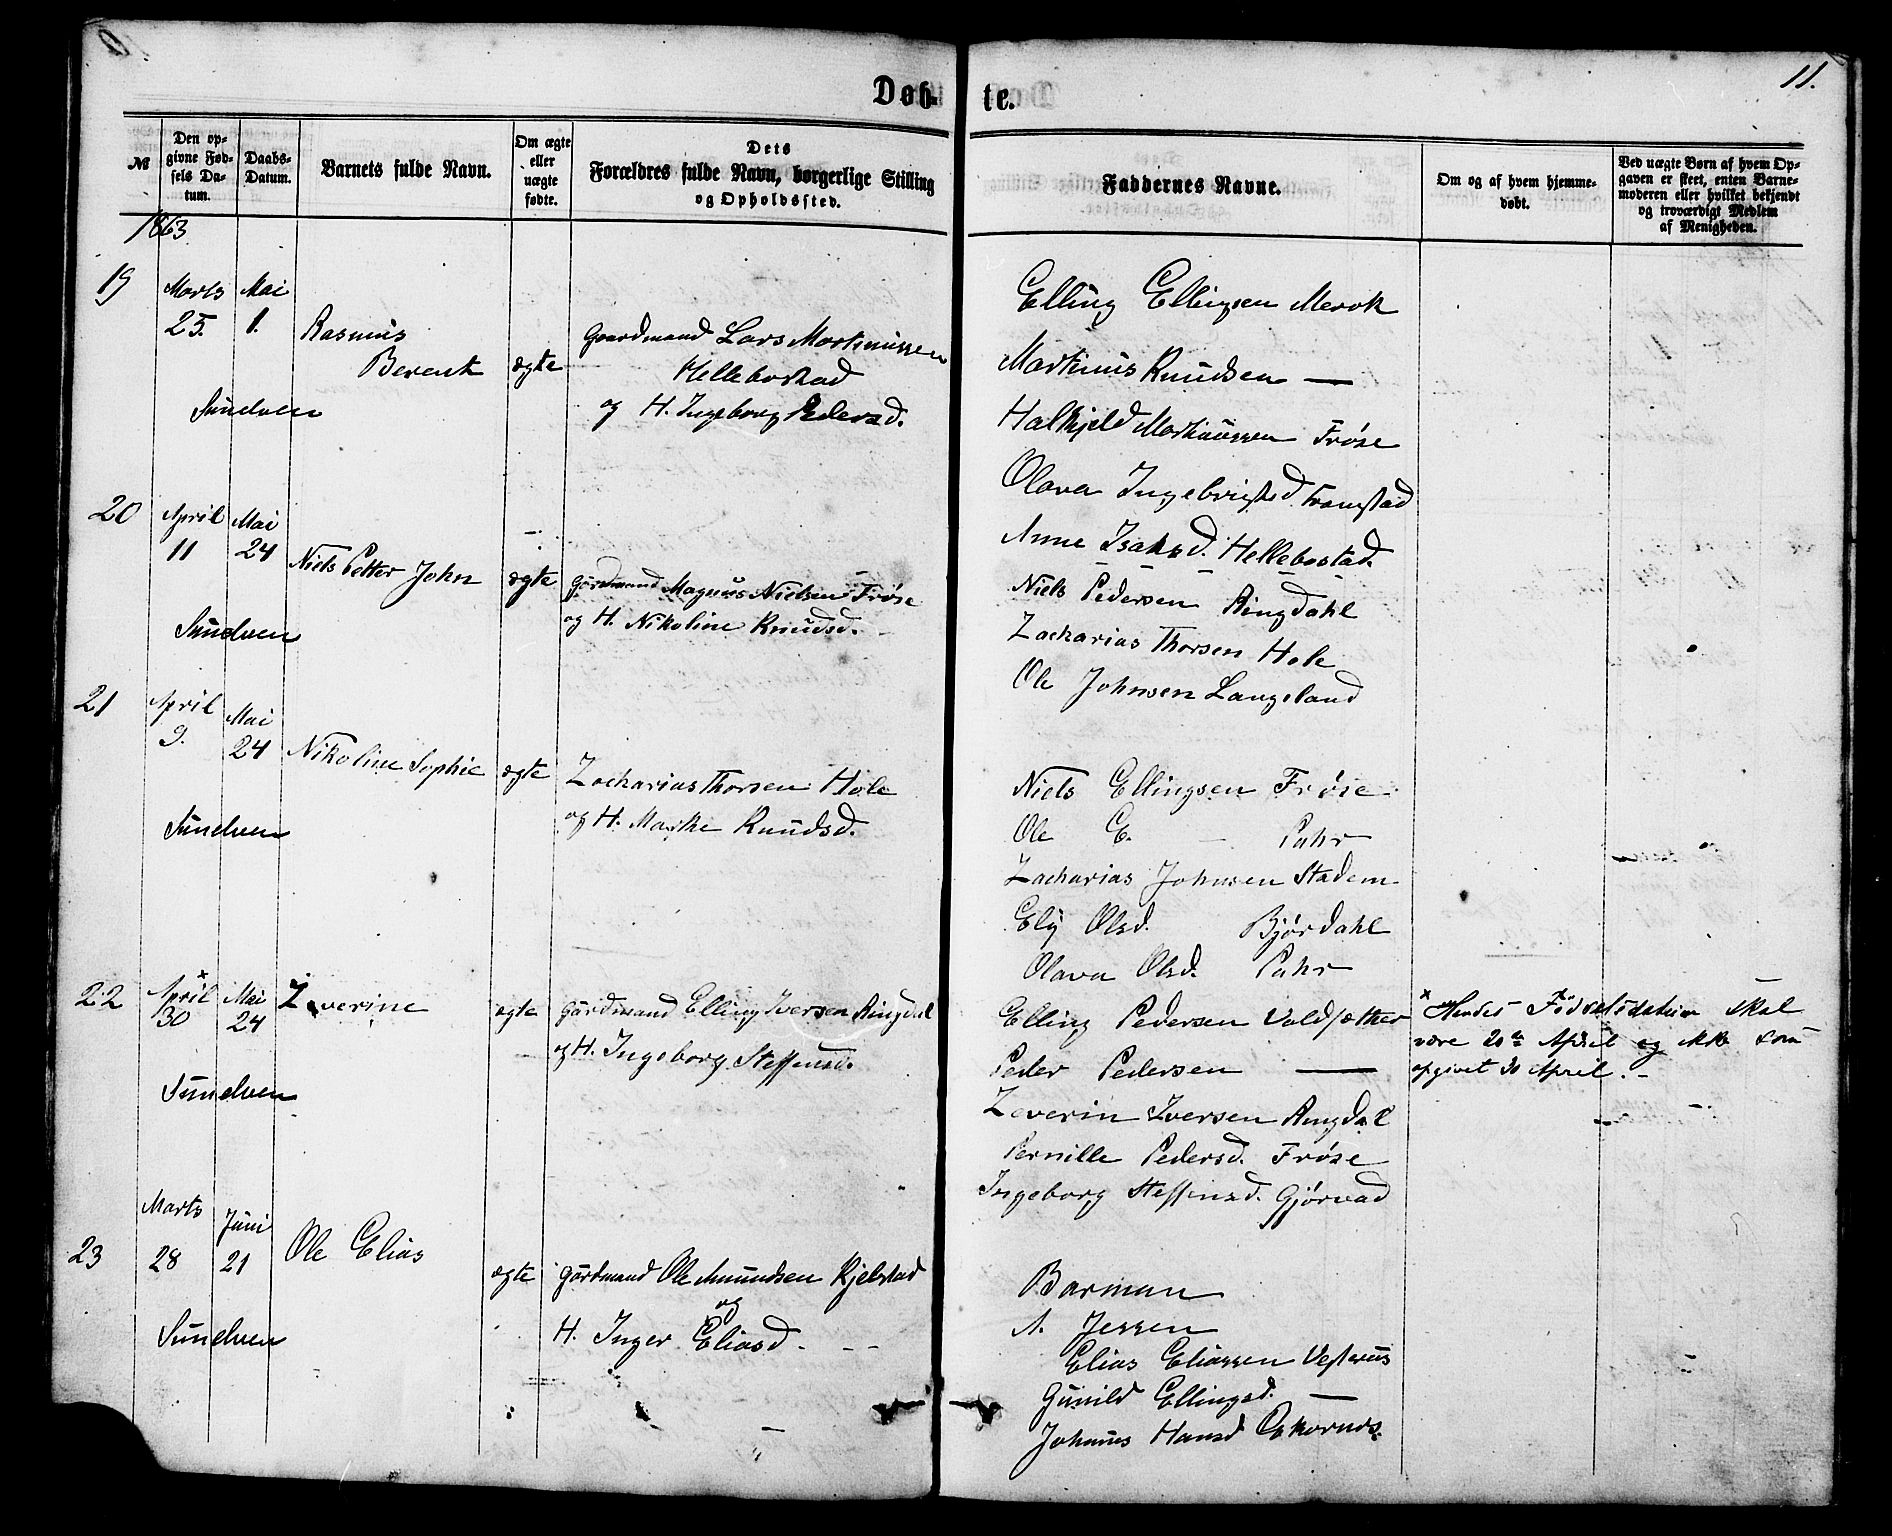 11.
Døb- te.
№
Den op-
givne Fød-
sels Da-
tum.
Daabs-
Datum.
Barnets fulde Navn.
Om ægte
eller
uægte
fødte.
Dets
Forældres fulde Navn, borgerlige Stilling
og Opholdssted.
Faddernes Navne.
Om og af hvem hjemme-
døbt.
Ved uægte Børn af hvem Op-
gaven er skeet, enten Barne-
moderen eller hvilket bekjendt
og troværdigt Medlem
af Menigheden.
1863
19
Marts
25.
Mai
1.
Rasmus
Berent
ægte
Gaardmand Lars Martinussen
Hellebostad
og H. Ingeborg Pedersd.
Sundven
Elling Ellingsen Merok
Martinus Knudsen —
Halkjeld Martinussen Frøse
Olava Ingebrigtsd. Tramstad
Anne Isaksd. Hellebostad.
20
April
11
Mai
24
Niels Petter John
ægte
Gårdmand Magnus Nielsen Frøse
og H. Nikoline Knudsd.
Sundven
Niels Pedersen Ringdahl
Zacharias Thorsen Hole
Ole Johnsen Langeland
21
April
9.
Mai
24
Nikoline Sophie
ægte
Zacharias Thorsen Hole
og H. Marthe Knudsd.
Sundven
Niels Ellingsen Frøse
Ole E. — Puhr
Zacharias Johnsen Stadem
Ely Olsd. Bjørdahl
Olava Olsd. Puhr
22
April ×
30
Mai
24
Zeverine
ægte
Gårdmand Elling Iversen Ringdal
og H. Ingeborg Steffensd.
Sundven
Elling Pedersen Voldsæther
Peder Pedersen —
Zeverin Iversen Ringdal
Pernille Pedersd. Frøse
Ingeborg Steffensd. Gjørvad
× Hendes Fødselsdatum skal
være 20de April og ikke som
opgivet 30 April. —
23
Marts
28
Juni
21
Ole Elias
ægte
Gårdmand Ole Amundsen Kjelstad
og
H. Inger Eliasd.
Sundven
Barman
A. Jessen
Elias Eliassen Vestnæs
Gunild Ellingsd. —
Hansd